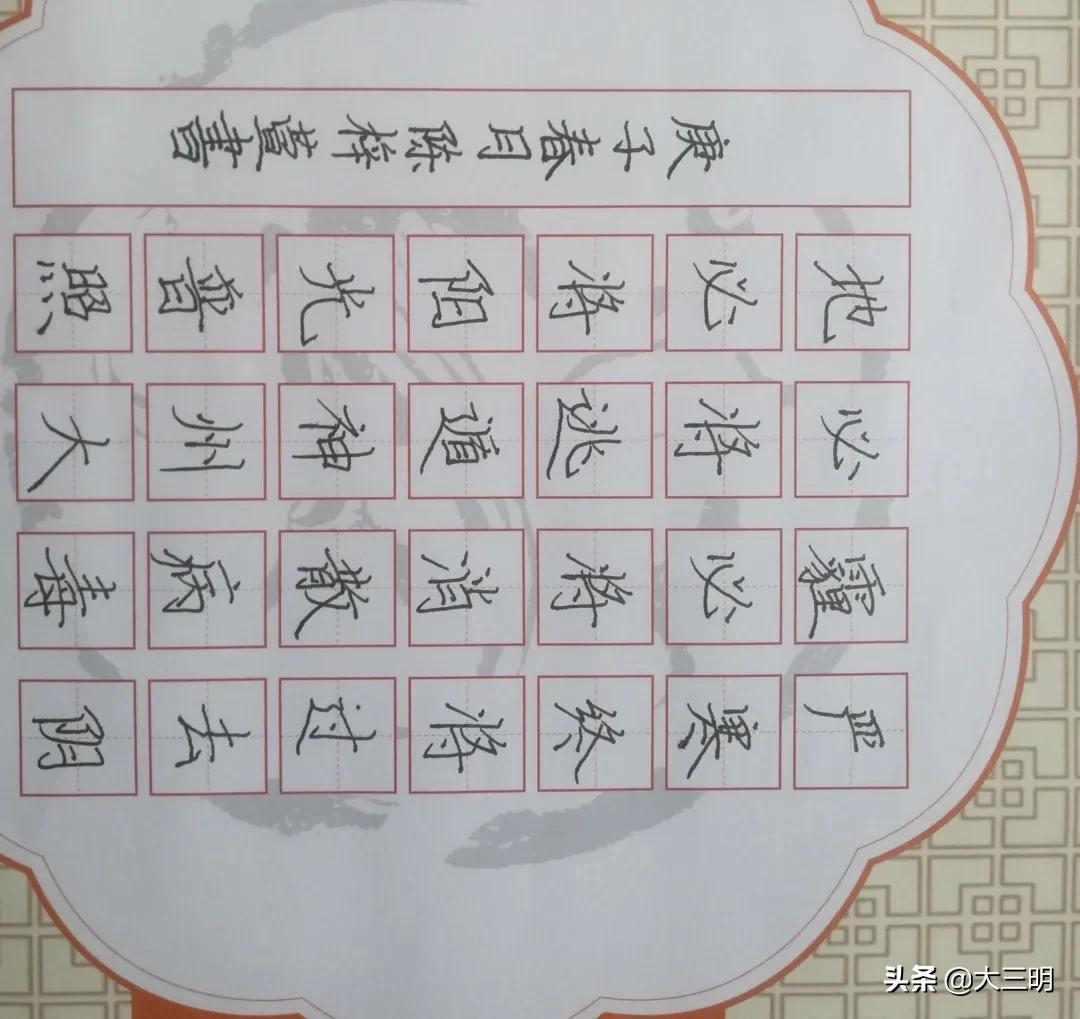 严寒终将过去阴
霾必将消散病毒
必将逃遁神州大
地必将阳光普照
庚子春月陈梓萱書
头条 @大三明